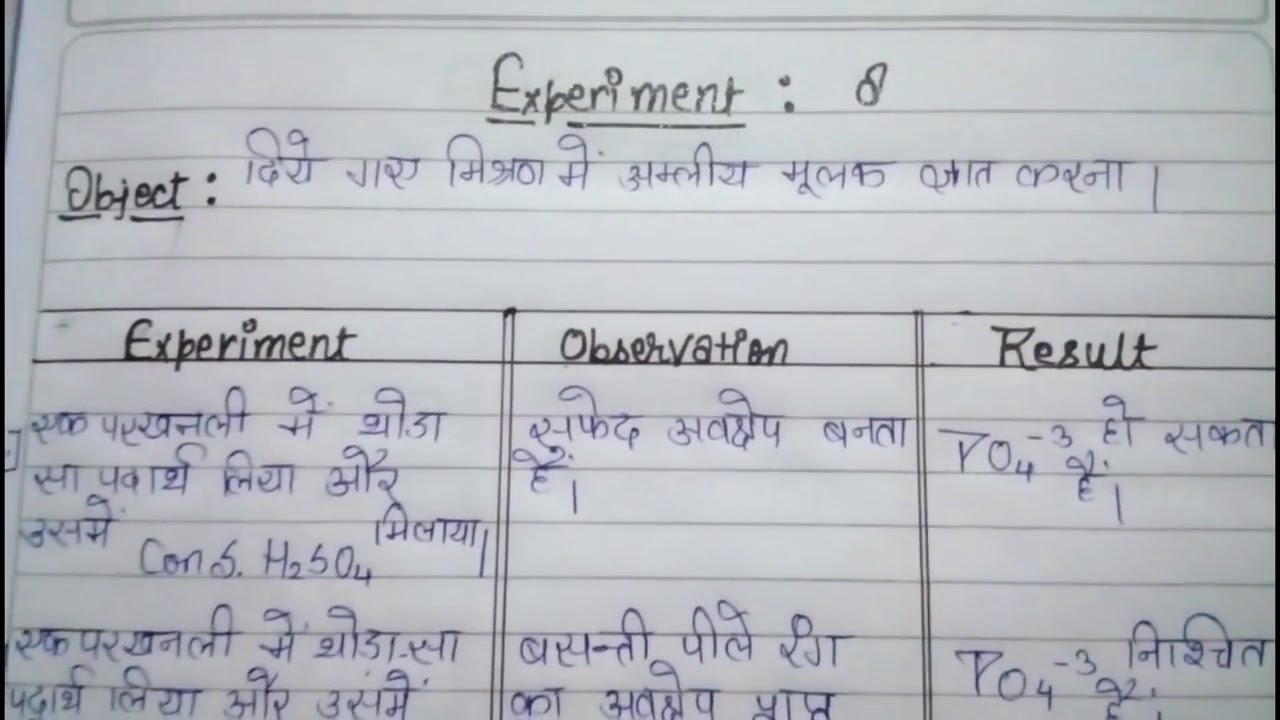 Experiment : 8
Object : दिये गए मिश्रण में अम्लीय मूलक ज्ञात करना |
Experiment
Observation
Result
एक परखनली में थोडा
सा पदार्थ लिया और
उसमें Con S. H₂SO₄ मिलाया|
सफेद अवक्षेप बनता
है|
PO₄⁻³ हो सकत
है|
एक परखनली में थोडा-सा
पदार्थ लिया और उसमें
बसन्ती पीले रंग
का अवक्षेप प्राप्त
PO₄⁻³ निश्चित
है|